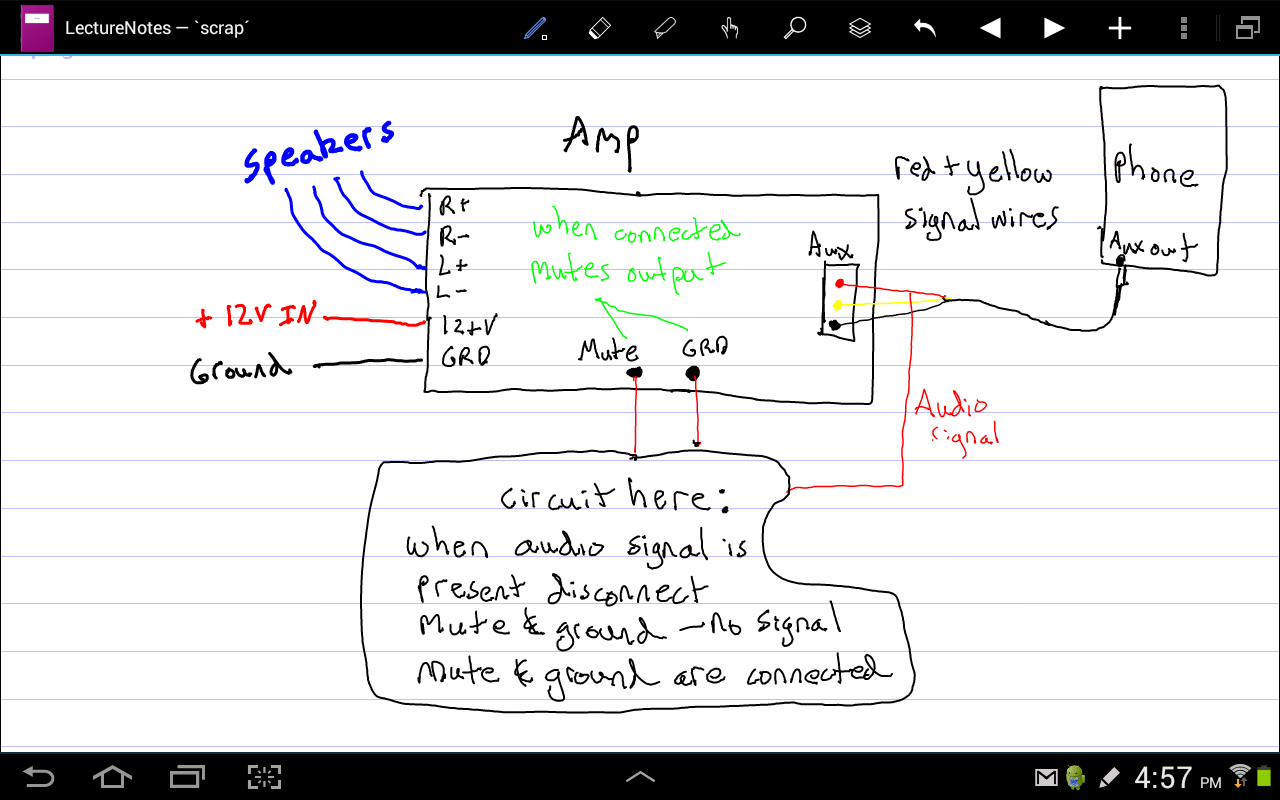 LectureNotes — `scrap´
Amp
speakers
red + yellow
signal wires
Phone
Aux out
R+
R-
L+
L-
12+V
GRD
when connected
mutes output
Aux
+ 12V IN
Ground
Mute
GRD
Audio
signal
circuit here:
when audio signal is
present disconnect
Mute & ground - no signal
mute & ground are connected
4:57 PM